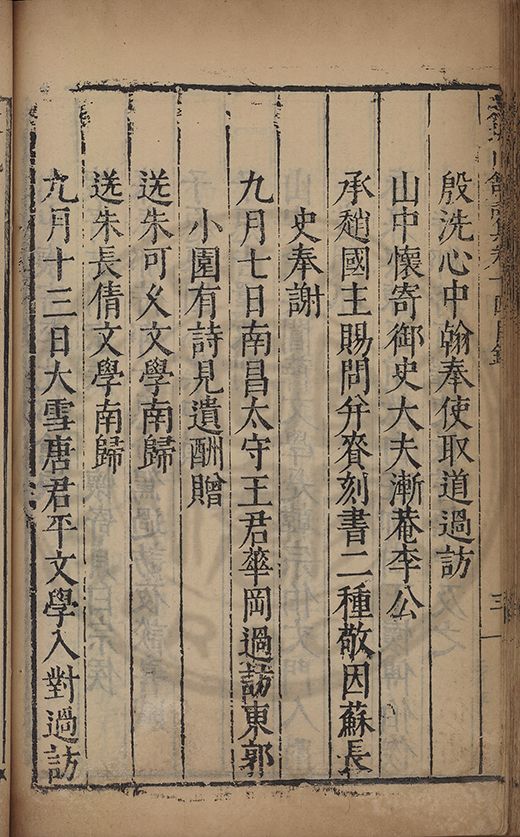 殷洗心中翰奉使取道過訪
山中懷寄御史大夫漸菴李公
承趙國主賜問并賚刻書二種敬因蘇長
史奉謝
九月七日南昌太守王君華岡過訪東郭
小園有詩見遺酬贈
送朱可乂文學南歸
送朱長倩文學南歸
九月十三日大雪唐君平文學入對過訪